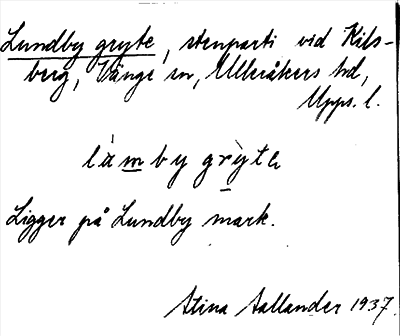 Lundby gryte, stenparti vid Kils-
berg, Vänge sn, Ulleråkers hd,
Upps. l.
làmby gry̆te
Ligger på Lundby mark.
Stina Sallander 1937.